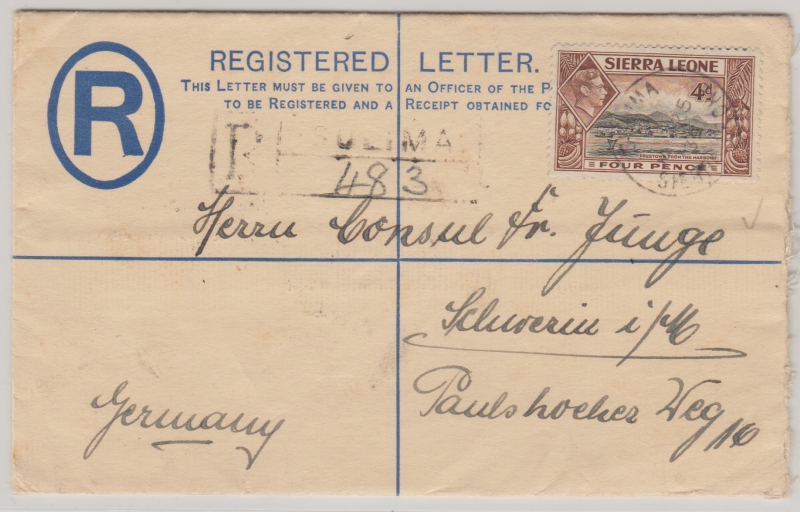 R
REGISTERED LETTER.
THIS LETTER MUST BE GIVEN TO AN OFFICER OF THE P
TO BE REGISTERED AND A RECEIPT OBTAINED FO
SIERRA LEONE
4d
FREETOWN FROM THE HARBOUR
FOUR PENCE
R SULIMA
483
Herrn Consul Fr. Junge
Schwerin i/M
Paulshoeher Weg
Germany